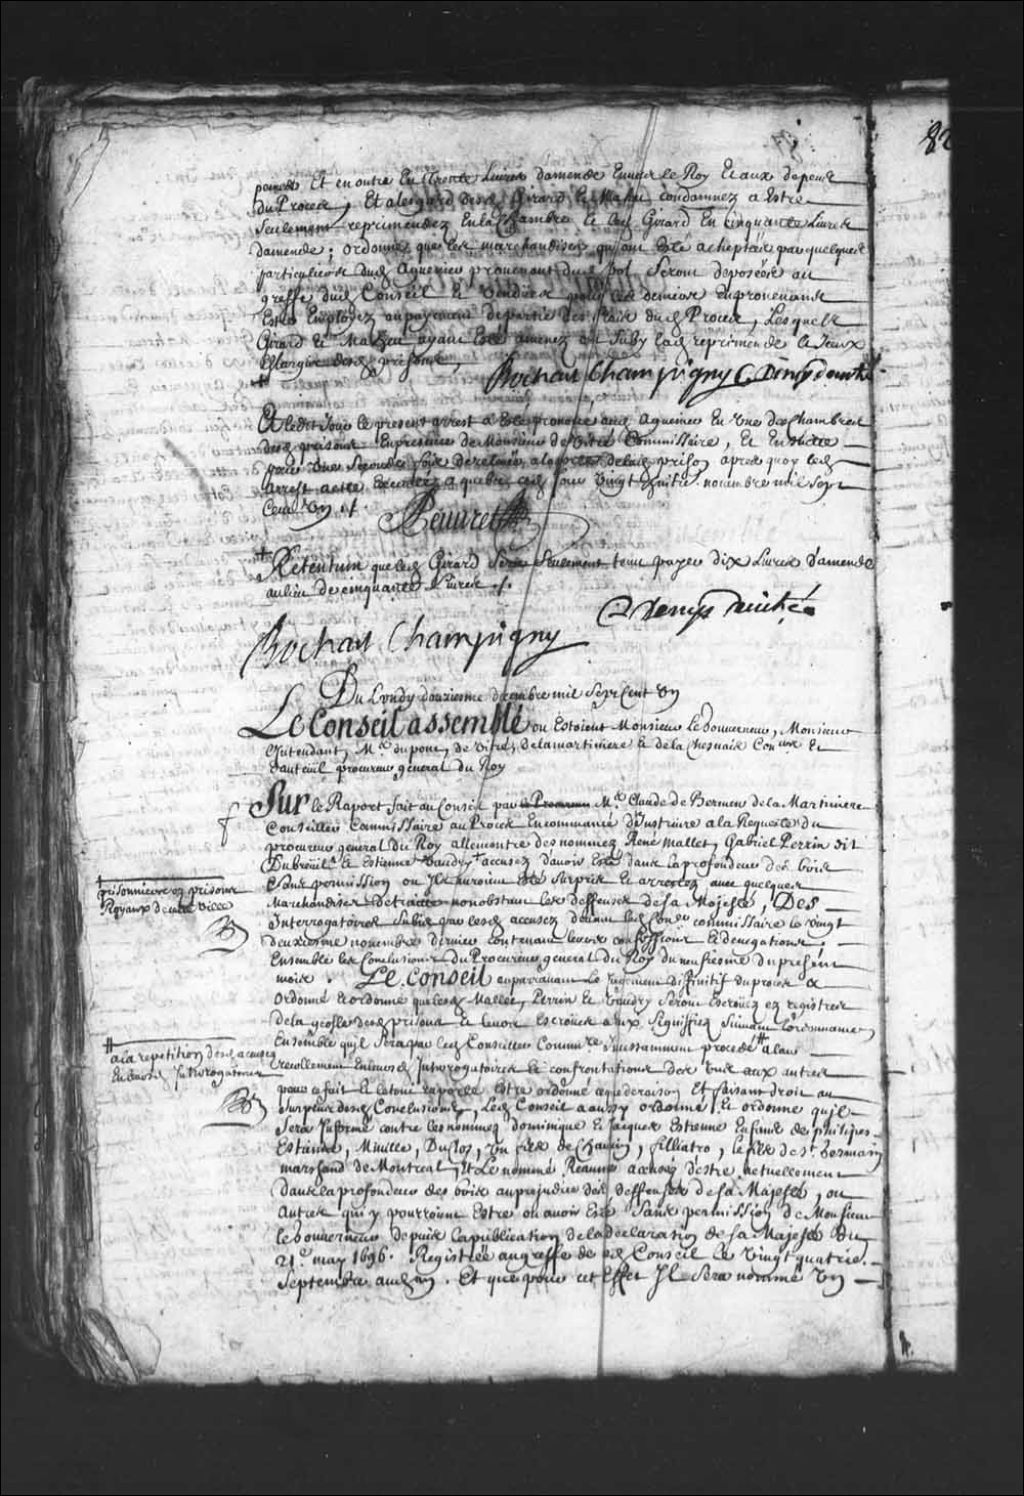 82
pouvre Et en outre En Trente Livres damende Envers le Roy Et aux depens
du Proces, Et alesgard desd. Girard & Maheu condamnez a Estre
seulement reprimendez En la Chambre & led. Girard En cinquante Livres
damende; ordonne que les marchandises qui ont Esté acheptées par quelques
particuliers dud. Aguenier provenant dud. vol Seront deposées au
greffe dud. Conseil & vendues pour les deniers En provenants
Estre Employez au payement de partie des frais dud. Proces, Lesquels
Girard & Maheu ayant Esté amenez ont Suby lad. reprimende & Iceux
Eslargis desd. prisons
Bochart Champigny C. Denys devitré
Et ledit Jour le present arrest a Esté prononcé aud. Aguenier En Une des Chambres
desd. prisons En presence de Monsieur de Vitré Commissaire, Et En suitte
pour Une Seconde fois de reluée a la porte de lad. prison apres quoy led.
arrest a esté Executé a quebec led. Jour Vingt huitie. novembre mil Sept
Cent Un ./.
Peuvret
+ Retentum que led. Girard Sera Seulement tenu payer dix Livres d'amende
au lieu de cinquante Livres ./.
C Denys devitré
Bochart Champigny
Du Lundy douziesme decembre mil Sept Cent Un
Le Conseil assemblé ou Estoient Monsieur Le Gouverneur, Monsieur
L'Intendant, Mrs. dupont, de Vitré, delamartiniere & de la Chesnaie Coners &
Dauteüil procureur general du Roy
Sur le Raport fait au Conseil par le Procureur Me. Claude de Bermen de la Martiniere
Conseiller Commissaire au Proces Encommancé d'Instruire a la Requeste du
procureur general du Roy allencontre des nommez René Mallet, Gabriel Perrin dit
Dubreüil & Estienne Vaudry + accusez davoir Esté dans la profondeur des bois
Sans permission ou Ils auroient Esté Surpris & arrestez avec quelques
+ prisonniers ez prisons
Royaux de cette Ville
Marchandises de traitte nonobstant les deffenses de Sa Majesté, Des
Interrogatoires Subis par lesd. accusez devant led. Coner. commissaire le vingt
deuxiesme novembre dernier contenant leurs confessions & denegations,
Ensemble les Conclusions du Procureur general du Roy du neufiesme du present
mois. Le Conseil auparavant Le Jugement diffinitif du proces a
Ordonné & ordonne que lesd. Mallet, Perrin & Vaudry Seront Escroüez ez registres
de la geolle desd. prisons & leurs Escroües a eux Signiffiez Suivant l'ordonnance
Ensemble qu'il Sera par led. Conseiller Commre. Incessamment procedé # a leur
# a la repetition desd. accusez
En leursd. Interrogatoires
recollement En leursd. Interrogatoires & confrontations des Uns aux autres
pour ce fait & le tout raporté Estre ordonné ce que de raison Et faisant droit au
Surplus desd. Conclusions, Led. Conseil a aussy ordonné & ordonne qu'il
Sera Informé contre les nommez dominique & Jacques Estienne Enfans de philipes
Estienne, Miville, Duclos, Un fils de Chauvin, filliatro, le fils de St. Germain
marchand de Montreal, Et Le nommé Reaume accusez d'estre actuellement
dans la profondeur des bois au prejudice des deffenses de Sa Majesté, ou
Autres qui y pourroient Estre ou avoir Esté Sans permission de Monsieur
le Gouverneur depuis la publication de la declaration de Sa Majesté du
21e. may 1696. Registrée au greffe de ced. Conseil Le Vingt quatrie.
Septembre aud. an. Et que pour cet Effet Il Sera nommé Un